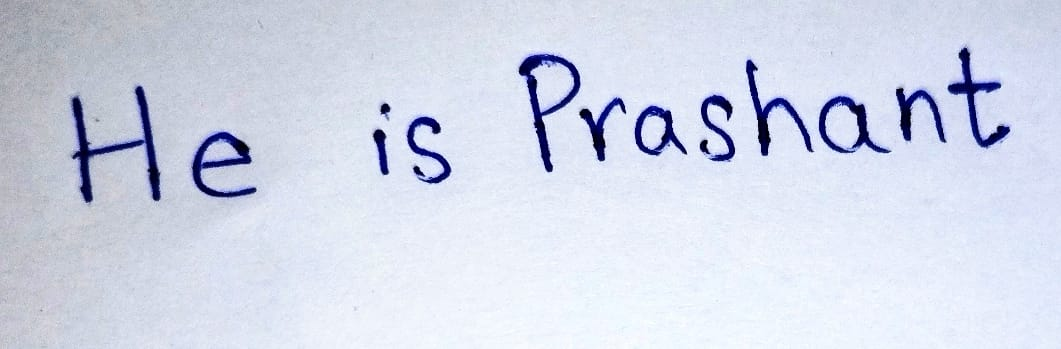 He is Prashant